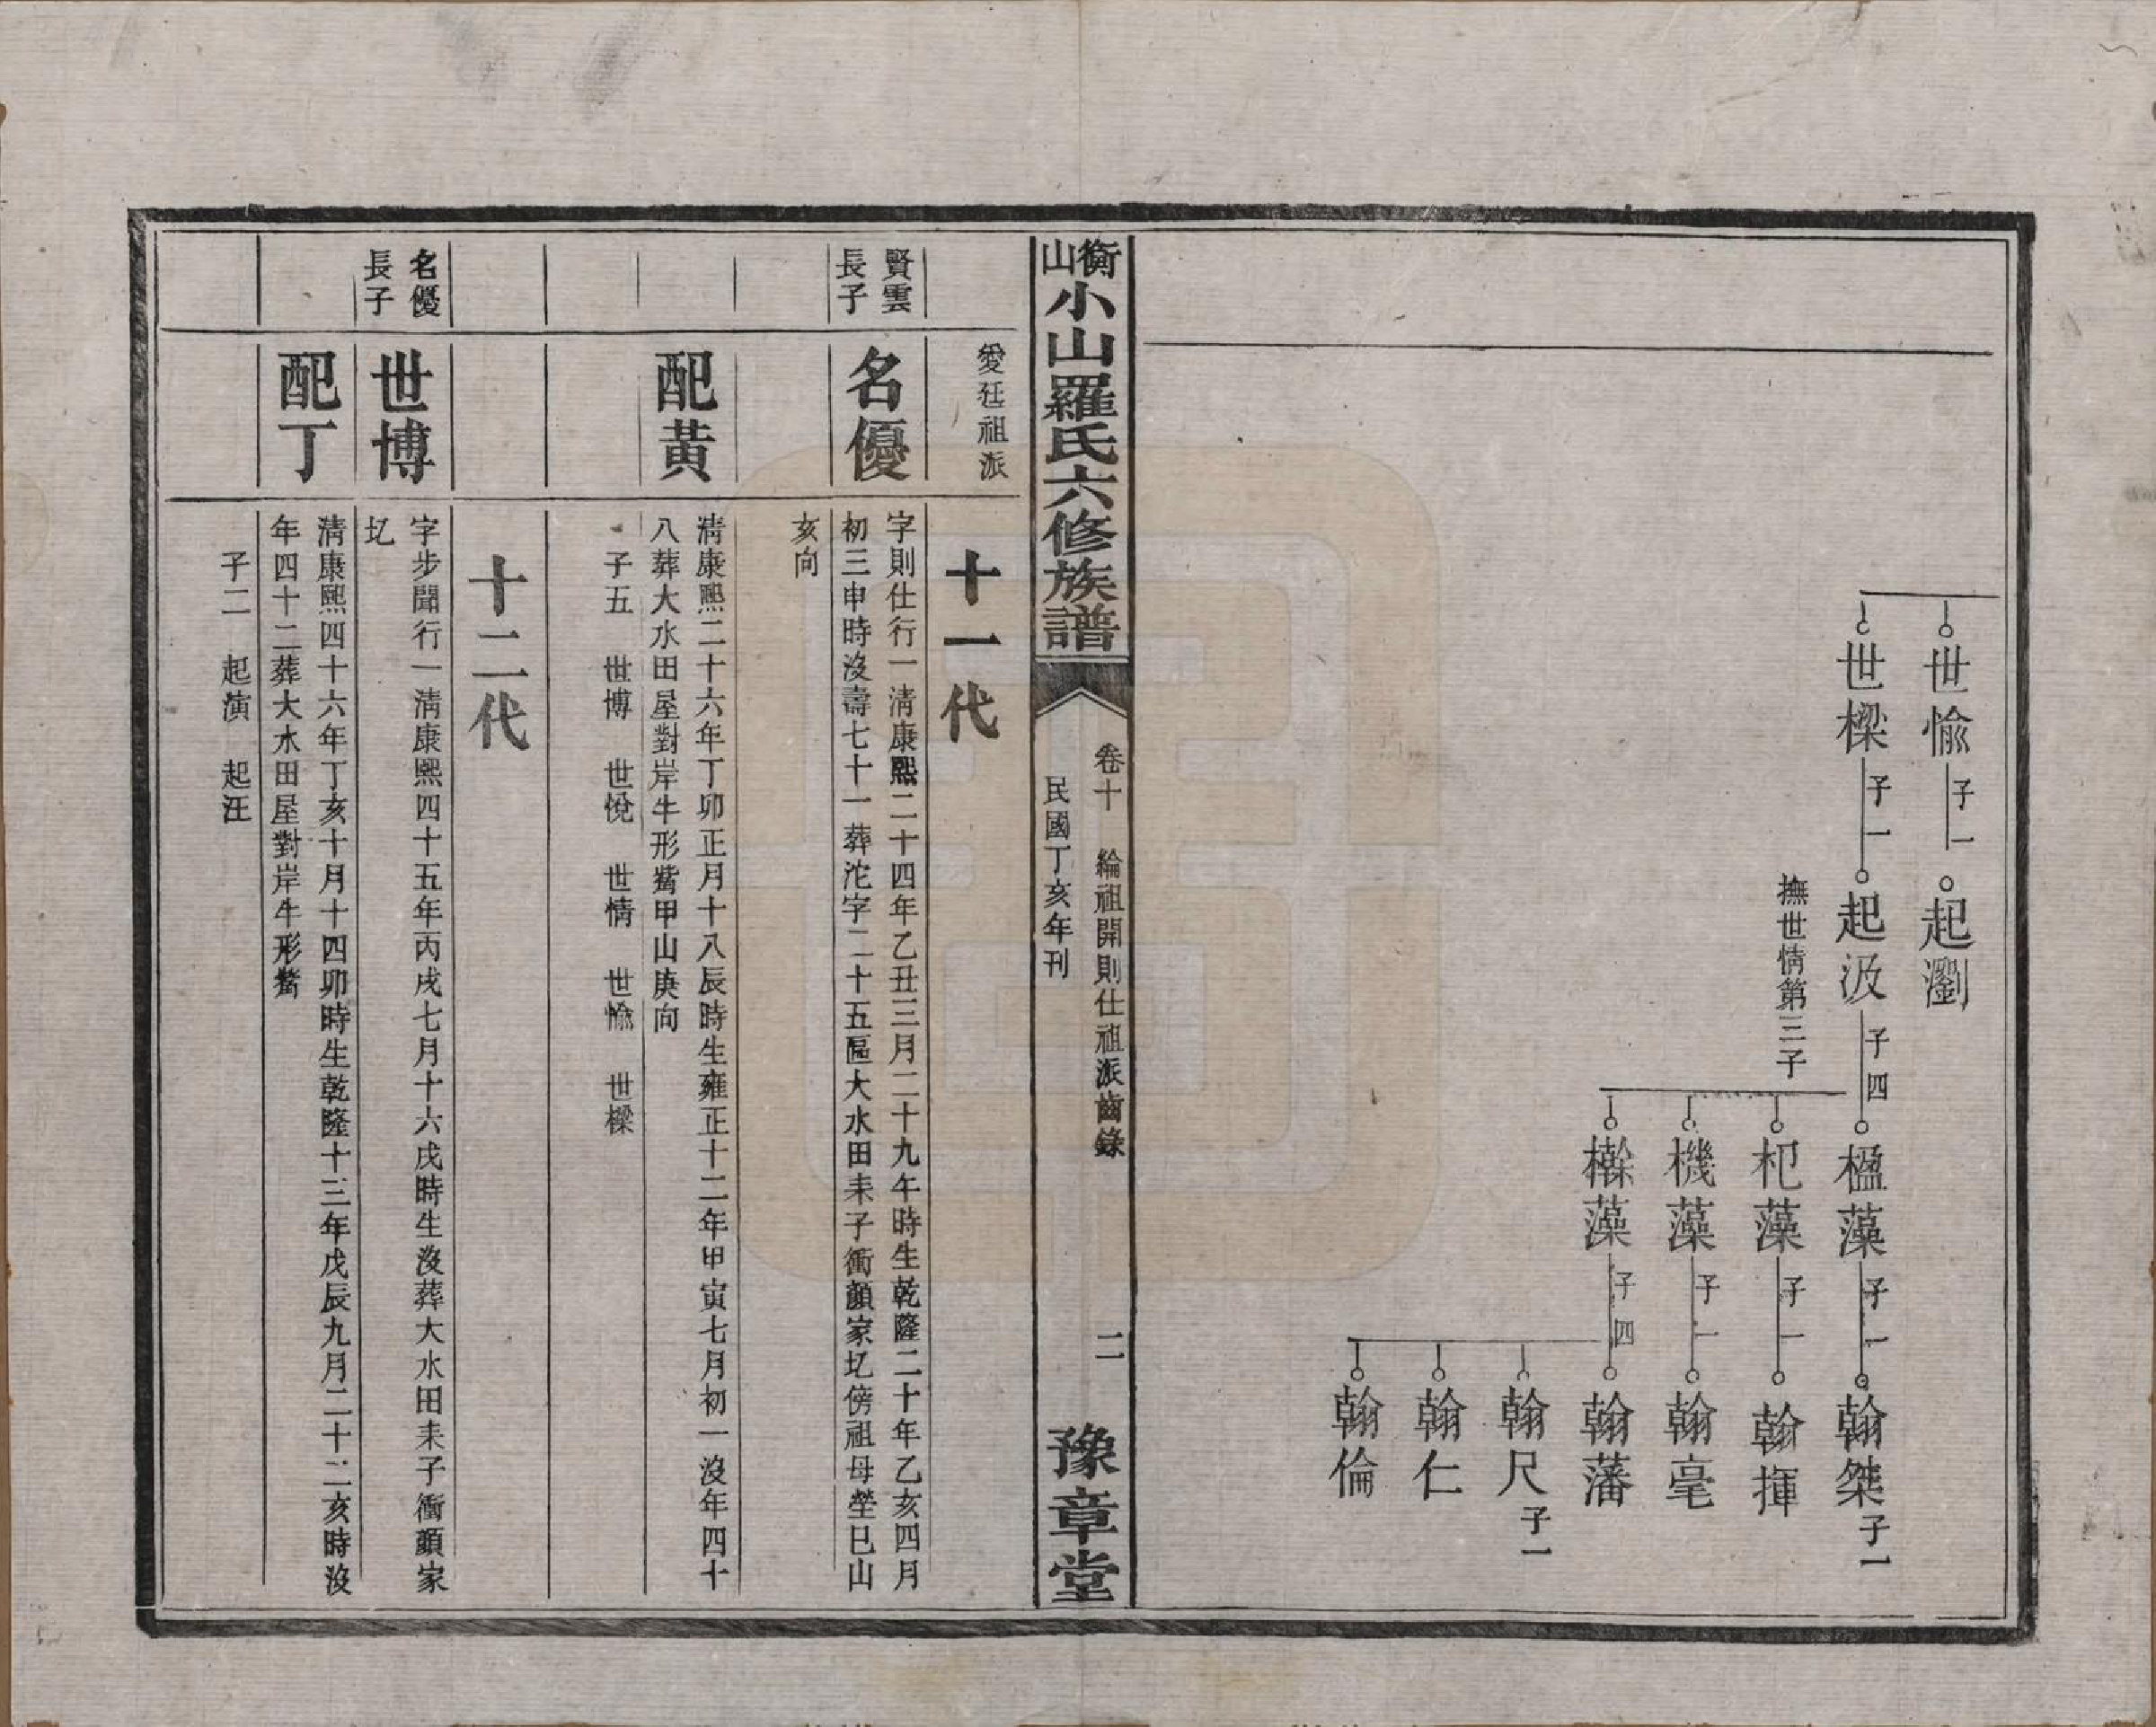 世愉 子一 起瀏
世樑 子一 起汲 子四 楹藻 子一 翰桀 子一
撫世情第三子
杞藻 子一 翰揮
機藻 子一 翰毫
榦藻 子四 翰藩
翰尺 子一
翰仁
翰倫
衡山小山羅氏六修族譜
卷十 綸祖開則仕祖派齒錄 二
民國丁亥年刊
豫章堂
愛廷祖派
十一代
賢雲
長子
名優
字則仕行一清康熙二十四年乙丑三月二十九午時生乾隆二十年乙亥四月
初三申時沒壽七十一葬沱字二十五區大水田耒子衝顏家圫傍祖母塋巳山
亥向
配黃
清康熙二十六年丁卯正月十八辰時生雍正十二年甲寅七月初一沒年四十
八葬大水田屋對岸牛形觜甲山庚向
子五 世博 世悅 世情 世愉 世樑
十二代
名優
長子
世博
字步聞行一清康熙四十五年丙戌七月十六戌時生沒葬大水田耒子衝顏家
圫
配丁
清康熙四十六年丁亥十月十四卯時生乾隆十三年戊辰九月二十二亥時沒
年四十二葬大水田屋對岸牛形觜
子二 起演 起汪